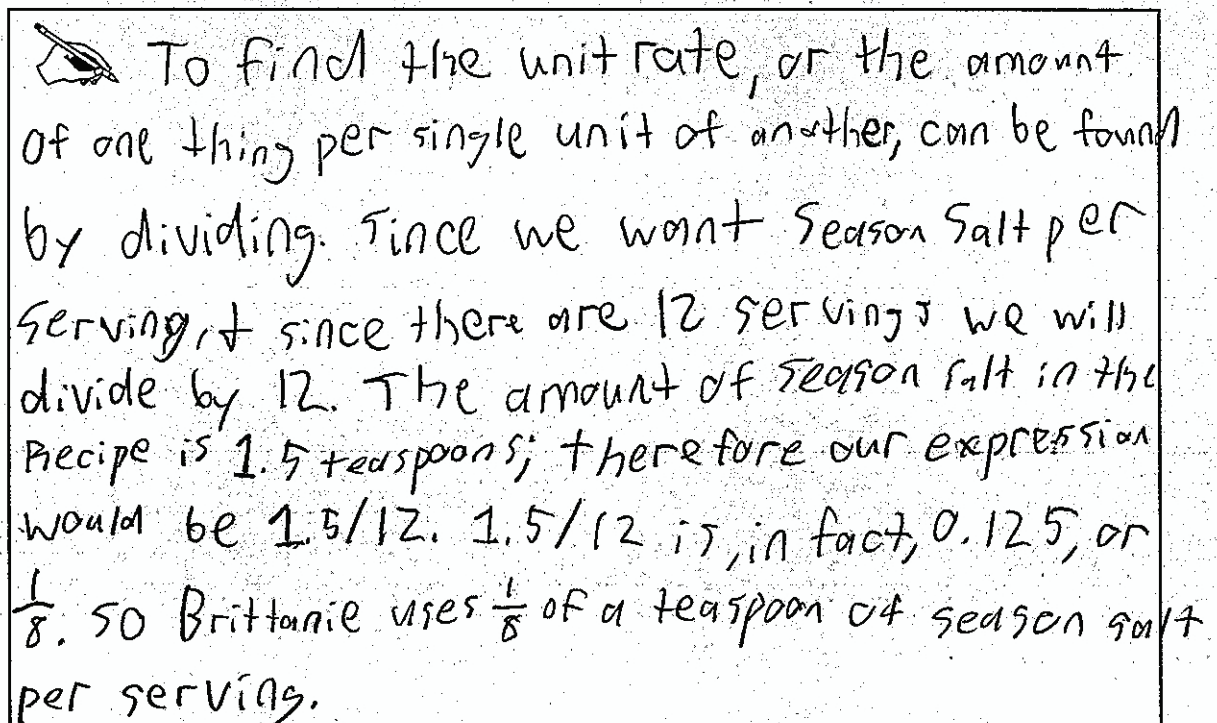 To find the unit rate, or the amount
of one thing per single unit of another, can be found
by dividing. Since we want Season Salt per
serving, + since there are 12 servings we will
divide by 12. The amount of season salt in the
Recipe is 1.5 teaspoons; therefore our expression
would be 1.5/12. 1.5/12 is, in fact, 0.125, or
1/8. So Brittanie uses 1/8 of a teaspoon of season salt
per serving.